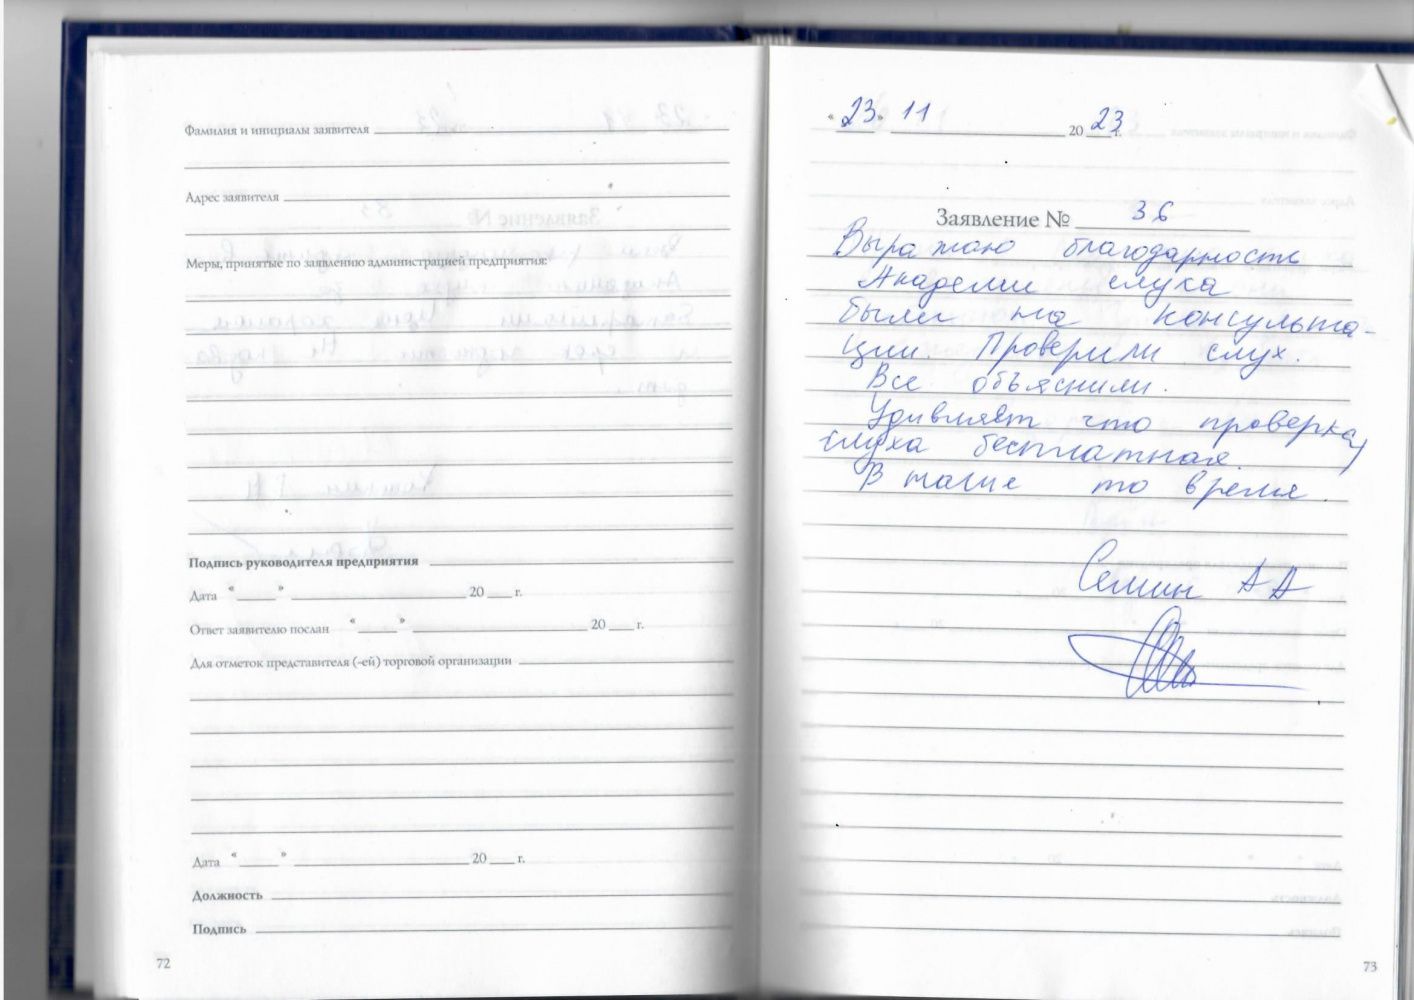 Фамилия и инициалы заявителя
Адрес заявителя
Меры, принятые по заявлению администрацией предприятия:
Подпись руководителя предприятия
Дата "____" ____ 20 ___ г.
Ответ заявителю послан "____" ____ 20 ___ г.
Для отметок представителя (-ей) торговой организации
Дата "____" ____ 20 ___ г.
Должность
Подпись
72
"23" 11 2023 г.
Заявление № 36
Выражаю благодарность
Академии слуха
были на консульта-
ции. Проверили слух.
Все объяснили.
Удивляет что проверка
слуха бесплатная.
В наше то время.
Семин А А
73